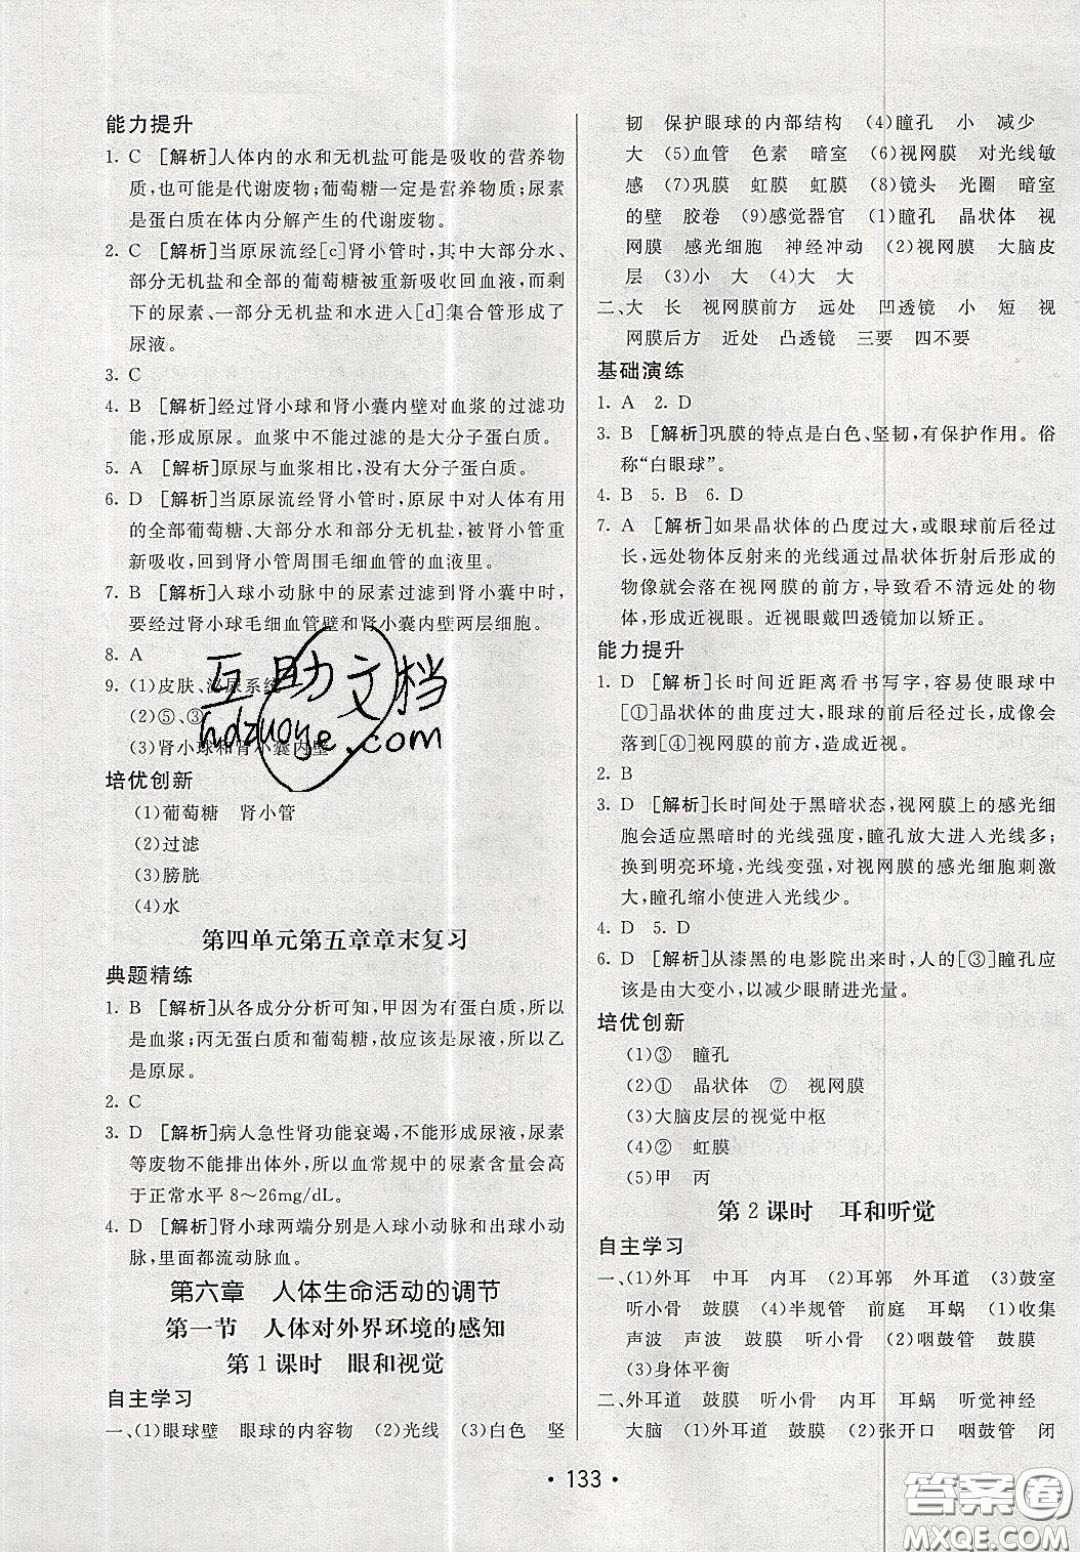 能力提升
1. C [解析]人体内的水和无机盐可能是吸收的营养物
质,也可能是代谢废物;葡萄糖一定是营养物质;尿素
是蛋白质在体内分解产生的代谢废物。
2. C [解析]当原尿流经[c]肾小管时,其中大部分水、
部分无机盐和全部的葡萄糖被重新吸收回血液,而剩
下的尿素、一部分无机盐和水进入[d]集合管形成了
尿液。
3. C
4. B [解析]经过肾小球和肾小囊内壁对血浆的过滤功
能,形成原尿。血浆中不能过滤的是大分子蛋白质。
5. A [解析]原尿与血浆相比,没有大分子蛋白质。
6. D [解析]当原尿流经肾小管时,原尿中对人体有用
的全部葡萄糖、大部分水和部分无机盐,被肾小管重新
吸收,回到肾小管周围毛细血管的血液里。
7. B [解析]入球小动脉中的尿素过滤到肾小囊中时,
要经过肾小球毛细血管壁和肾小囊内壁两层细胞。
8. A
9. (1)皮肤、泌尿系统
(2)⑤、③
(3)肾小球和肾小囊内壁
培优创新
(1)葡萄糖 肾小管
(2)过滤
(3)膀胱
(4)水
第四单元第五章章末复习
典题精练
1. B [解析]从各成分分析可知,甲因为有蛋白质,所以
是血浆;丙无蛋白质和葡萄糖,故应该是尿液,所以乙
是原尿。
2. C
3. D [解析]病人急性肾功能衰竭,不能形成尿液,尿素
等废物不能排出体外,所以血常规中的尿素含量会高
于正常水平 8～26mg/dL。
4. D [解析]肾小球两端分别是入球小动脉和出球小动
脉,里面都流动脉血。
第六章 人体生命活动的调节
第一节 人体对外界环境的感知
第 1 课时 眼和视觉
自主学习
一、(1)眼球壁 眼球的内容物 (2)光线 (3)白色 坚
韧 保护眼球的内部结构 (4)瞳孔 小 减少
大 (5)血管 色素 暗室 (6)视网膜 对光线敏
感 (7)巩膜 虹膜 虹膜 (8)镜头 光圈 暗室
的壁 胶卷 (9)感觉器官 (1)瞳孔 晶状体 视
网膜 感光细胞 神经冲动 (2)视网膜 大脑皮
层 (3)小 大 (4)大 大
二、大 长 视网膜前方 远处 凹透镜 小 短 视
网膜后方 近处 凸透镜 三要 四不要
基础演练
1. A 2. D
3. B [解析]巩膜的特点是白色、坚韧,有保护作用。俗
称“白眼球”。
4. B 5. B 6. D
7. A [解析]如果晶状体的凸度过大,或眼球前后径过
长,远处物体反射来的光线通过晶状体折射后形成的
物像就会落在视网膜的前方,导致看不清远处的物
体,形成近视眼。近视眼戴凹透镜加以矫正。
能力提升
1. D [解析]长时间近距离看书写字,容易使眼球中
[①]晶状体的曲度过大,眼球的前后径过长,成像会
落在[④]视网膜的前方,造成近视。
2. B
3. D [解析]长时间处于黑暗状态,视网膜上的感光细
胞会适应黑暗时的光线强度,瞳孔放大进入光线多;
换到明亮环境,光线变强,对视网膜的感光细胞刺激
大,瞳孔缩小使进入光线少。
4. D 5. D
6. D [解析]从漆黑的电影院出来时,人的[③]瞳孔应
该是由大变小,以减少眼睛进光量。
培优创新
(1)③ 瞳孔
(2)① 晶状体 ⑦ 视网膜
(3)大脑皮层的视觉中枢
(4)② 虹膜
(5)甲 丙
第 2 课时 耳和听觉
自主学习
一、(1)外耳 中耳 内耳 (2)耳郭 外耳道 (3)鼓室
听小骨 鼓膜 (4)半规管 前庭 耳蜗 (1)收集
声波 声波 鼓膜 鼓膜 听小骨 (2)咽鼓管 鼓膜
(3)身体平衡
二、外耳道 鼓膜 听小骨 内耳 耳蜗 听觉神经
大脑 (1)外耳道 鼓膜 (2)张开口 咽鼓管 闭
· 133 ·
互助文档
hdzuoye.com
答案圈
MXQE.COM